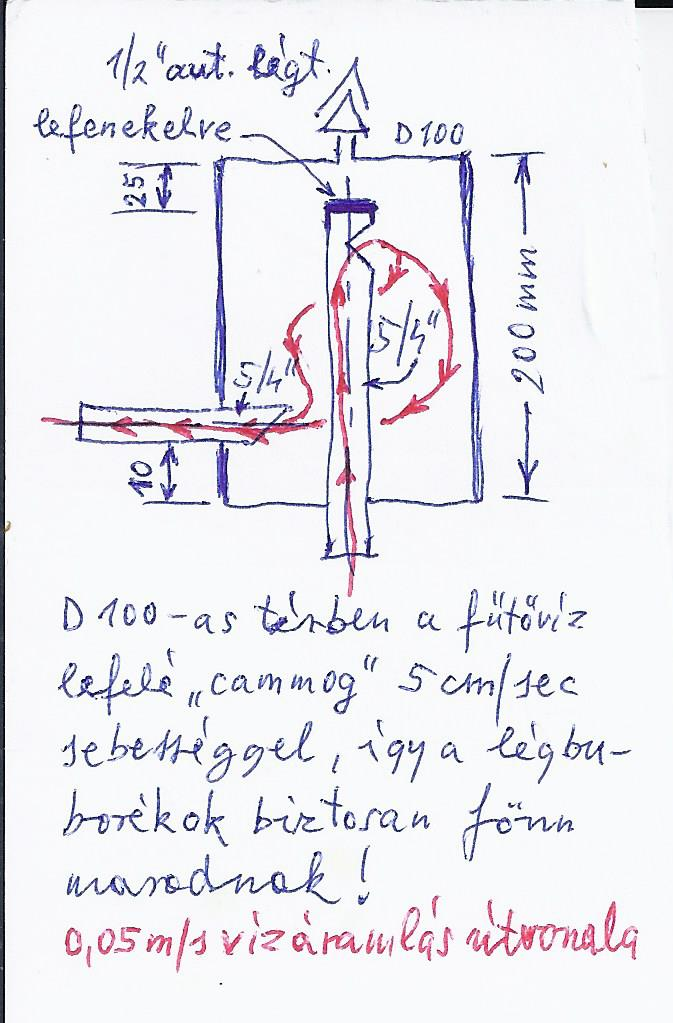 1/2" aut. légt.
lefenekelve
D 100
25
200 mm
5/4"
5/4"
10
D 100-as térben a fűtővíz
lefelé „cammog" 5 cm/sec
sebességgel, így a légbu-
borékok biztosan fönn
maradnak!
0,05 m/s vízáramlás útvonala